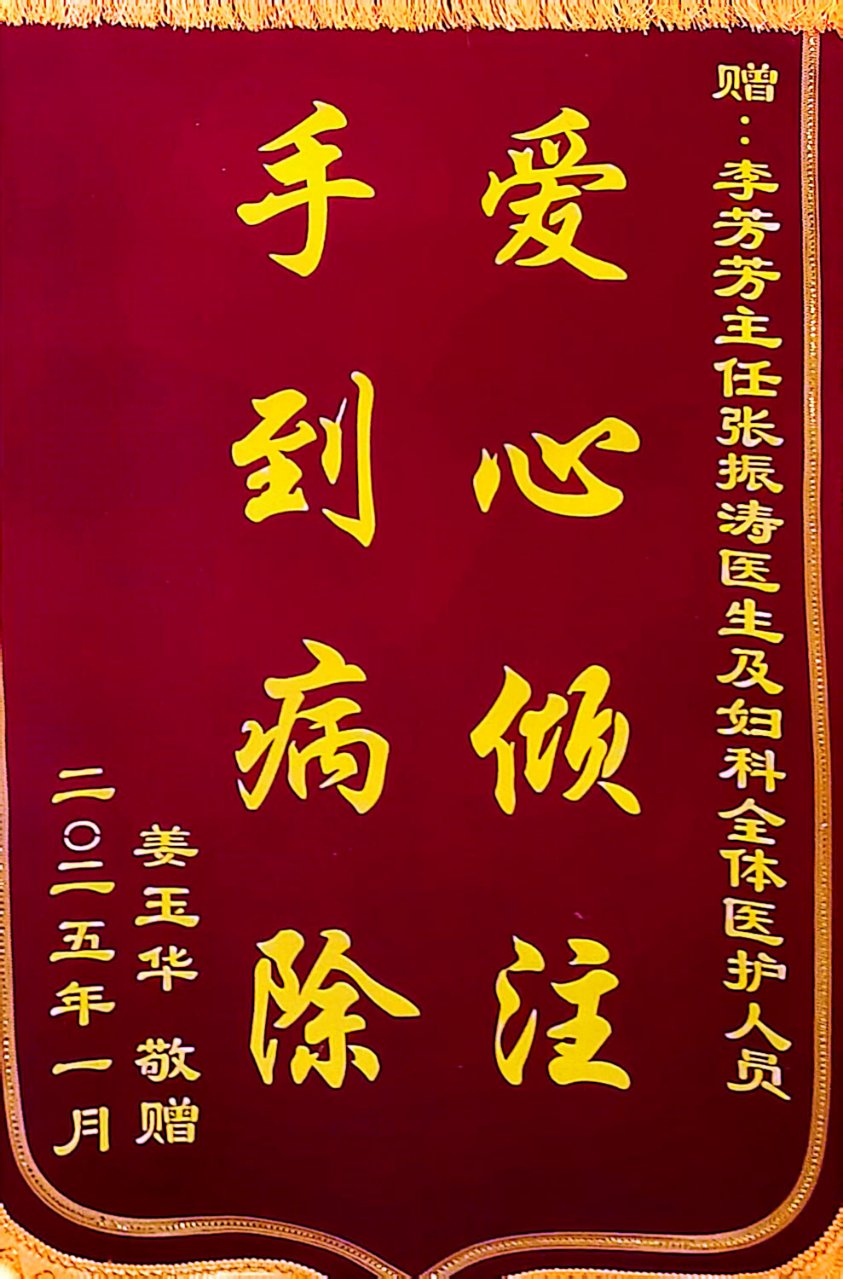 赠：李芳芳主任张振涛医生及妇科全体医护人员
爱心倾注
手到病除
姜玉华 敬赠
二〇二五年一月